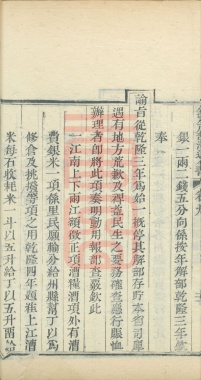 銀一兩二錢五分向係按年解部乾隆三年奉
諭旨從乾隆三年為始一概停其解部存貯本省司庫
遇有地方荒歉及裨益民生之要務確查應行賑恤
辦理者即將此項奏明動用報部查覈欽此
一江南上下兩江額徵正項漕糧漕項外有漕
費銀米一項係里民願輸分給州縣幫丁以為
修倉及挑塘等項之用乾隆四年題准上江漕
米每石收耗米一斗以五升給丁以五升畱給